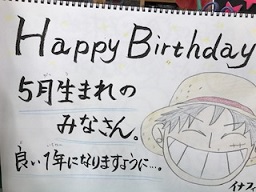 Happy Birthday
5月生まれの
みなさん。
良い1年になりますように…。